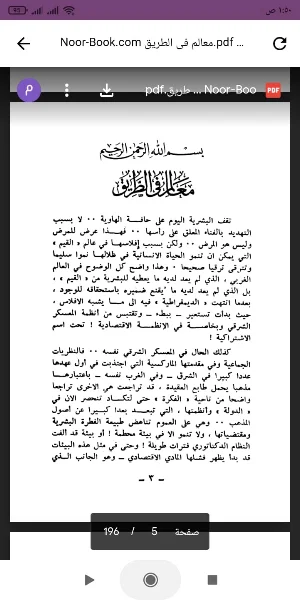 ١:٥٠ ص
Noor-Book.com معالم فى الطريق.pdf ...
Noor-Boo ... طريق.pdf
PDF
P
بسم الله الرحمن الرحيم
معالم في الطريق
تقف البشرية اليوم على حافة الهاوية ٠٠ لا بسبب
التهديد بالفناء المعلق على رأسها ٠٠ فهذا عرض للمرض
وليس هو المرض ٠٠ ولكن بسبب إفلاسها في عالم « القيم »
التي يمكن أن تنمو الحياة الانسانية في ظلالها نموا سليما
وتترقى ترقيا صحيحا ٠ وهذا واضح كل الوضوح في العالم
الغربي ، الذي لم يعد لديه ما يعطيه للبشرية من « القيم » ،
بل الذي لم يعد لديه ما يقنع ضميره باستحقاقه للوجود ،
بعدما انتهت « الديمقراطية » فيه الى ما يشبه الافلاس ،
حيث بدأت تستعير - ببطء - وتقتبس من أنظمة المعسكر
الشرقي وبخاصة في الأنظمة الاقتصادية ! تحت اسم
الاشتراكية !
كذلك الحال في المعسكر الشرقي نفسه ٠٠ فالنظريات
الجماعية وفي مقدمتها الماركسية التي اجتذبت في أول عهدها
عددا كبيرا في الشرق - وفي الغرب نفسه - باعتبارها
مذهبا يحمل طابع العقيدة ، قد تراجعت هي الاخرى تراجعا
واضحا من ناحية « الفكرة » حتى لتكاد تنحصر الان في
« الدولة » وأنظمتها ، التي تبعد بعدا كبيرا عن أصول
المذهب ٠٠ وهي على العموم تناهض طبيعة الفطرة البشرية
ومقتضياتها ، ولا تنمو الا في بيئة محطمة ! أو بيئة قد ألفت
النظام الدكتاتوري فترات طويلة ! وحتى في مثل هذه البيئات
قد بدأ يظهر فشلها المادي الاقتصادي - وهو الجانب الذي
- ٣ -
صفحة 5 / 196